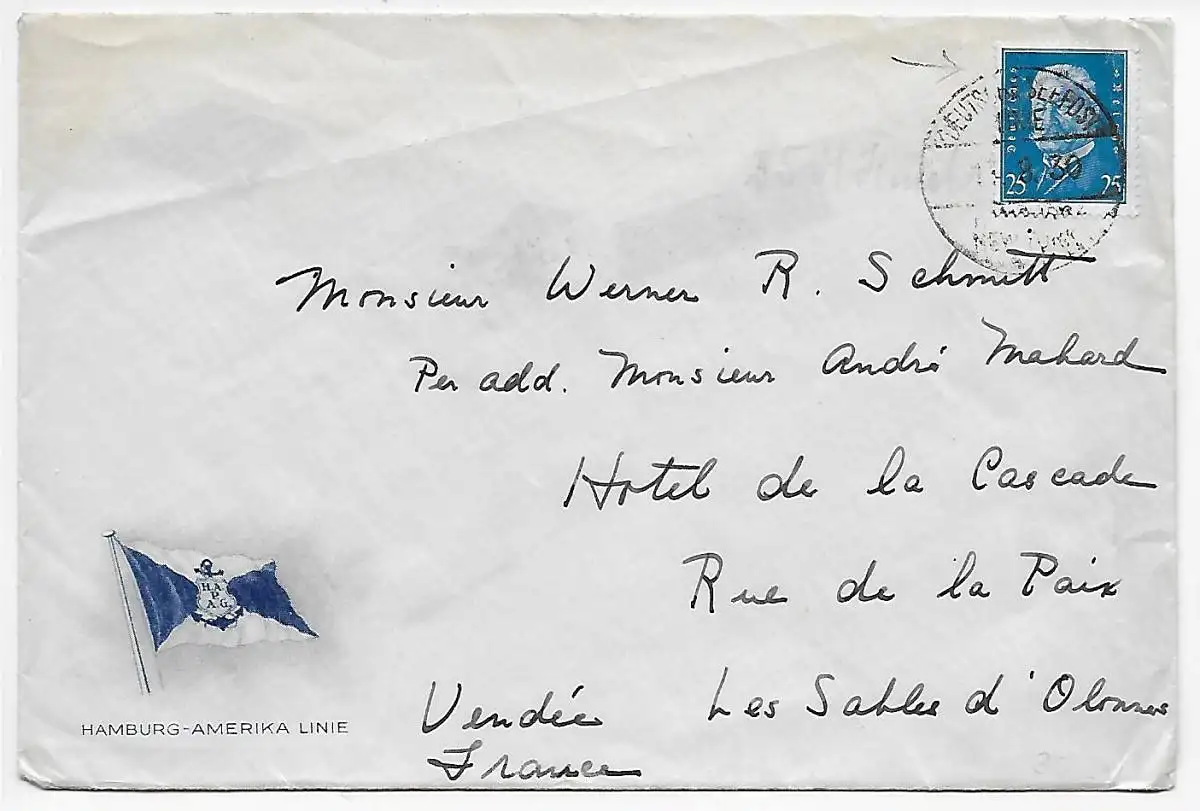 Deutsches Reich
25 25
DEUTSCHE SEEPOST
.8.30
HAMBURG
NEW YORK
Monsieur Werner R. Schmitt
Per add. Monsieur André Mahard
Hotel de la Cascade
Rue de la Paix
Vendée Les Sables d'Olonnes
France
H.A.
P
A.G.
HAMBURG-AMERIKA LINIE